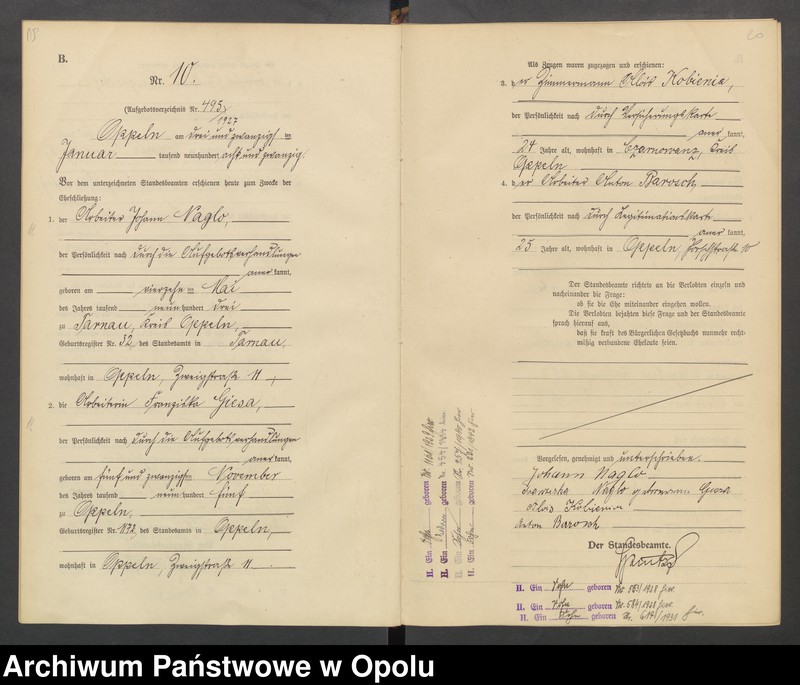 B.
Nr. 10.
(Aufgebotsverzeichnis Nr. 495)
1927
Oppeln am drei und zwanzigsten
Januar tausend neunhundert acht und zwanzig.
Vor dem unterzeichneten Standesbeamten erschienen heute zum Zwecke der
Eheschließung:
1. der Arbeiter Johann Naglo,
der Persönlichkeit nach durch die Aufgebotsverhandlungen
anerkannt,
geboren am vierzehnten Mai
des Jahres tausend neunhundert drei
zu Tarnau, Kreis Oppeln,
Geburtsregister Nr. 52, des Standesamts in Tarnau,
wohnhaft in Oppeln, Zweigstraße 11,
2. die Arbeiterin Franziska Giesa,
der Persönlichkeit nach durch die Aufgebotsverhandlungen
anerkannt,
geboren am fünf und zwanzigsten November
des Jahres tausend neunhundert fünf
zu Oppeln,
Geburtsregister Nr. des Standesamts in Oppeln,
wohnhaft in Oppeln, Zweigstraße 11.
Als Zeugen waren zugezogen und erschienen:
3. der Zimmermann Kobienia,
der Persönlichkeit nach durch Versicherungskarte
anerkannt,
24 Jahre alt, wohnhaft in Czarnowanz, Kreis
Oppeln
4. der Arbeiter Anton Barosch
der Persönlichkeit nach durch Legitimationskarte
anerkannt,
25 Jahre alt, wohnhaft in Oppeln, 10
Der Standesbeamte richtete an die Verlobten einzeln und
nacheinander die Frage:
ob sie die Ehe miteinander eingehen wollen.
Die Verlobten bejahten diese Frage und der Standesbeamte
sprach hierauf aus,
daß sie kraft des Bürgerlichen Gesetzbuchs nunmehr recht-
mäßig verbundene Eheleute seien.
Vorgelesen, genehmigt und unterschrieben.
Johann Naglo
Naglo geborene Giesa
Kobienia
Anton Barosch
Der Standesbeamte.
H. Ein Sohn geboren Nr. 583/1928 hier.
H. Ein Sohn geboren Nr. 584/1928 hier.
H. Ein Sohn geboren Nr. hier.
H. Ein geboren
H. Ein geboren
H. Ein geboren
H. Ein geboren
Archiwum Państwowe w Opolu